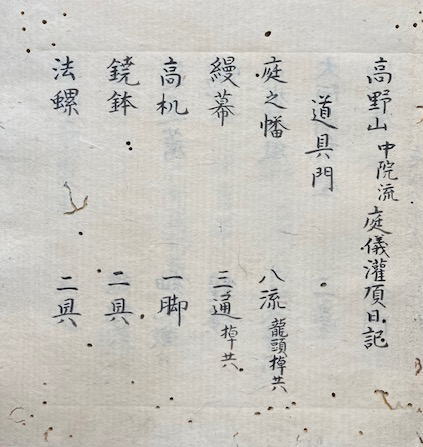 高野山中院流庭儀灌頂日記
道具門
庭之幡 八流龍頭棹共
縵幕 三通棹共
高机 一脚
鐃鉢 二具
法螺 二具